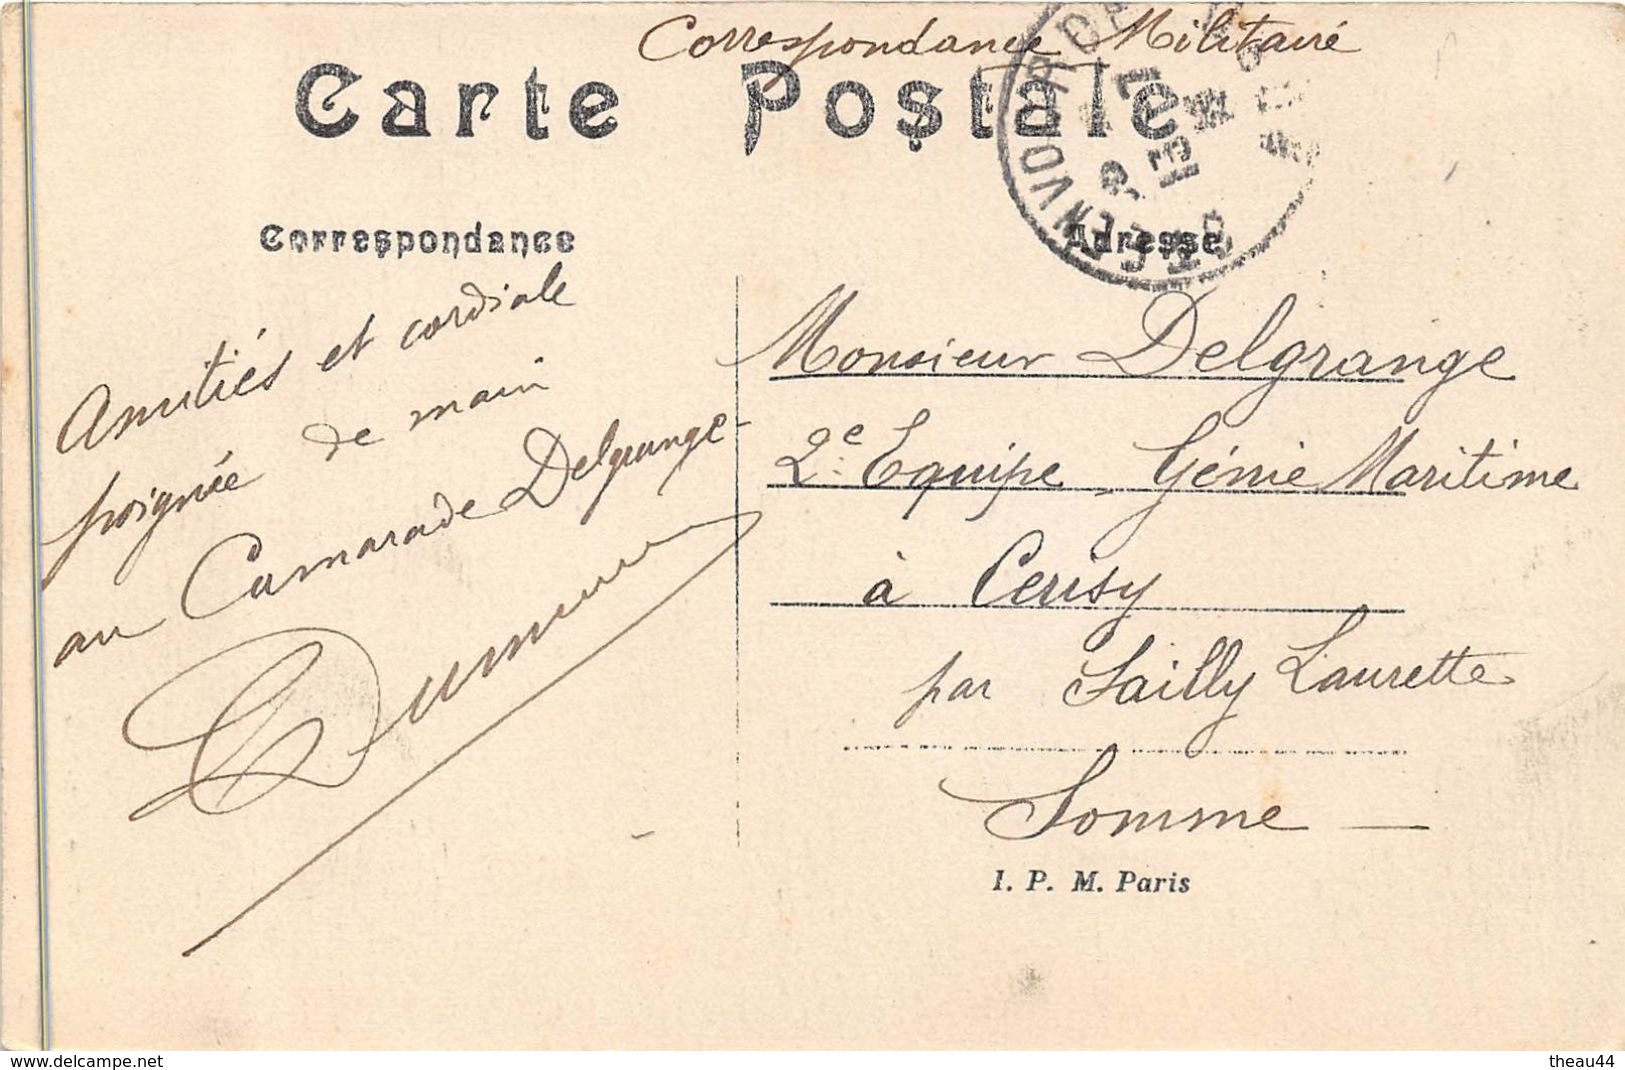 Correspondance Militaire
Carte Postale
Correspondance
Adresse
Amitiés et cordiale
poignée de main
au Camarade Delgrange
Monsieur Delgrange
2e Equipe, Génie Maritime
à Cerisy
par Sailly Laurette
Somme —
I. P. M. Paris
www.delcampe.net
theau44